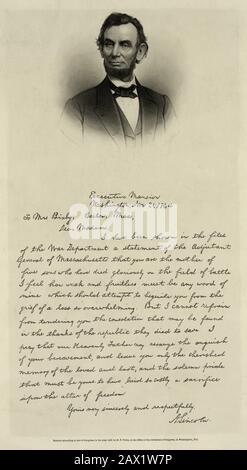 Executive Mansion
Washington, Nov 21, 1864
To Mrs Bixby, Boston, Mass,
Dear Madam,
I have been shown in the files
of the War Department a statement of the Adjutant
General of Massachusetts that you are the mother of
five sons who have died gloriously on the field of battle
I feel how weak and fruitless must be any word of
mine which should attempt to beguile you from the
grief of a loss so overwhelming. But I cannot refrain
from tendering you the consolation that may be found
in the thanks of the republic they died to save. I
pray that our Heavenly Father may assuage the anguish
of your bereavement, and leave you only the cherished
memory of the loved and lost, and the solemn pride
that must be yours to have laid so costly a sacrifice
upon the altar of freedom
Yours very sincerely and respectfully
A. Lincoln
a
alamy
Image ID: 2AX1W7P
www.alamy.com